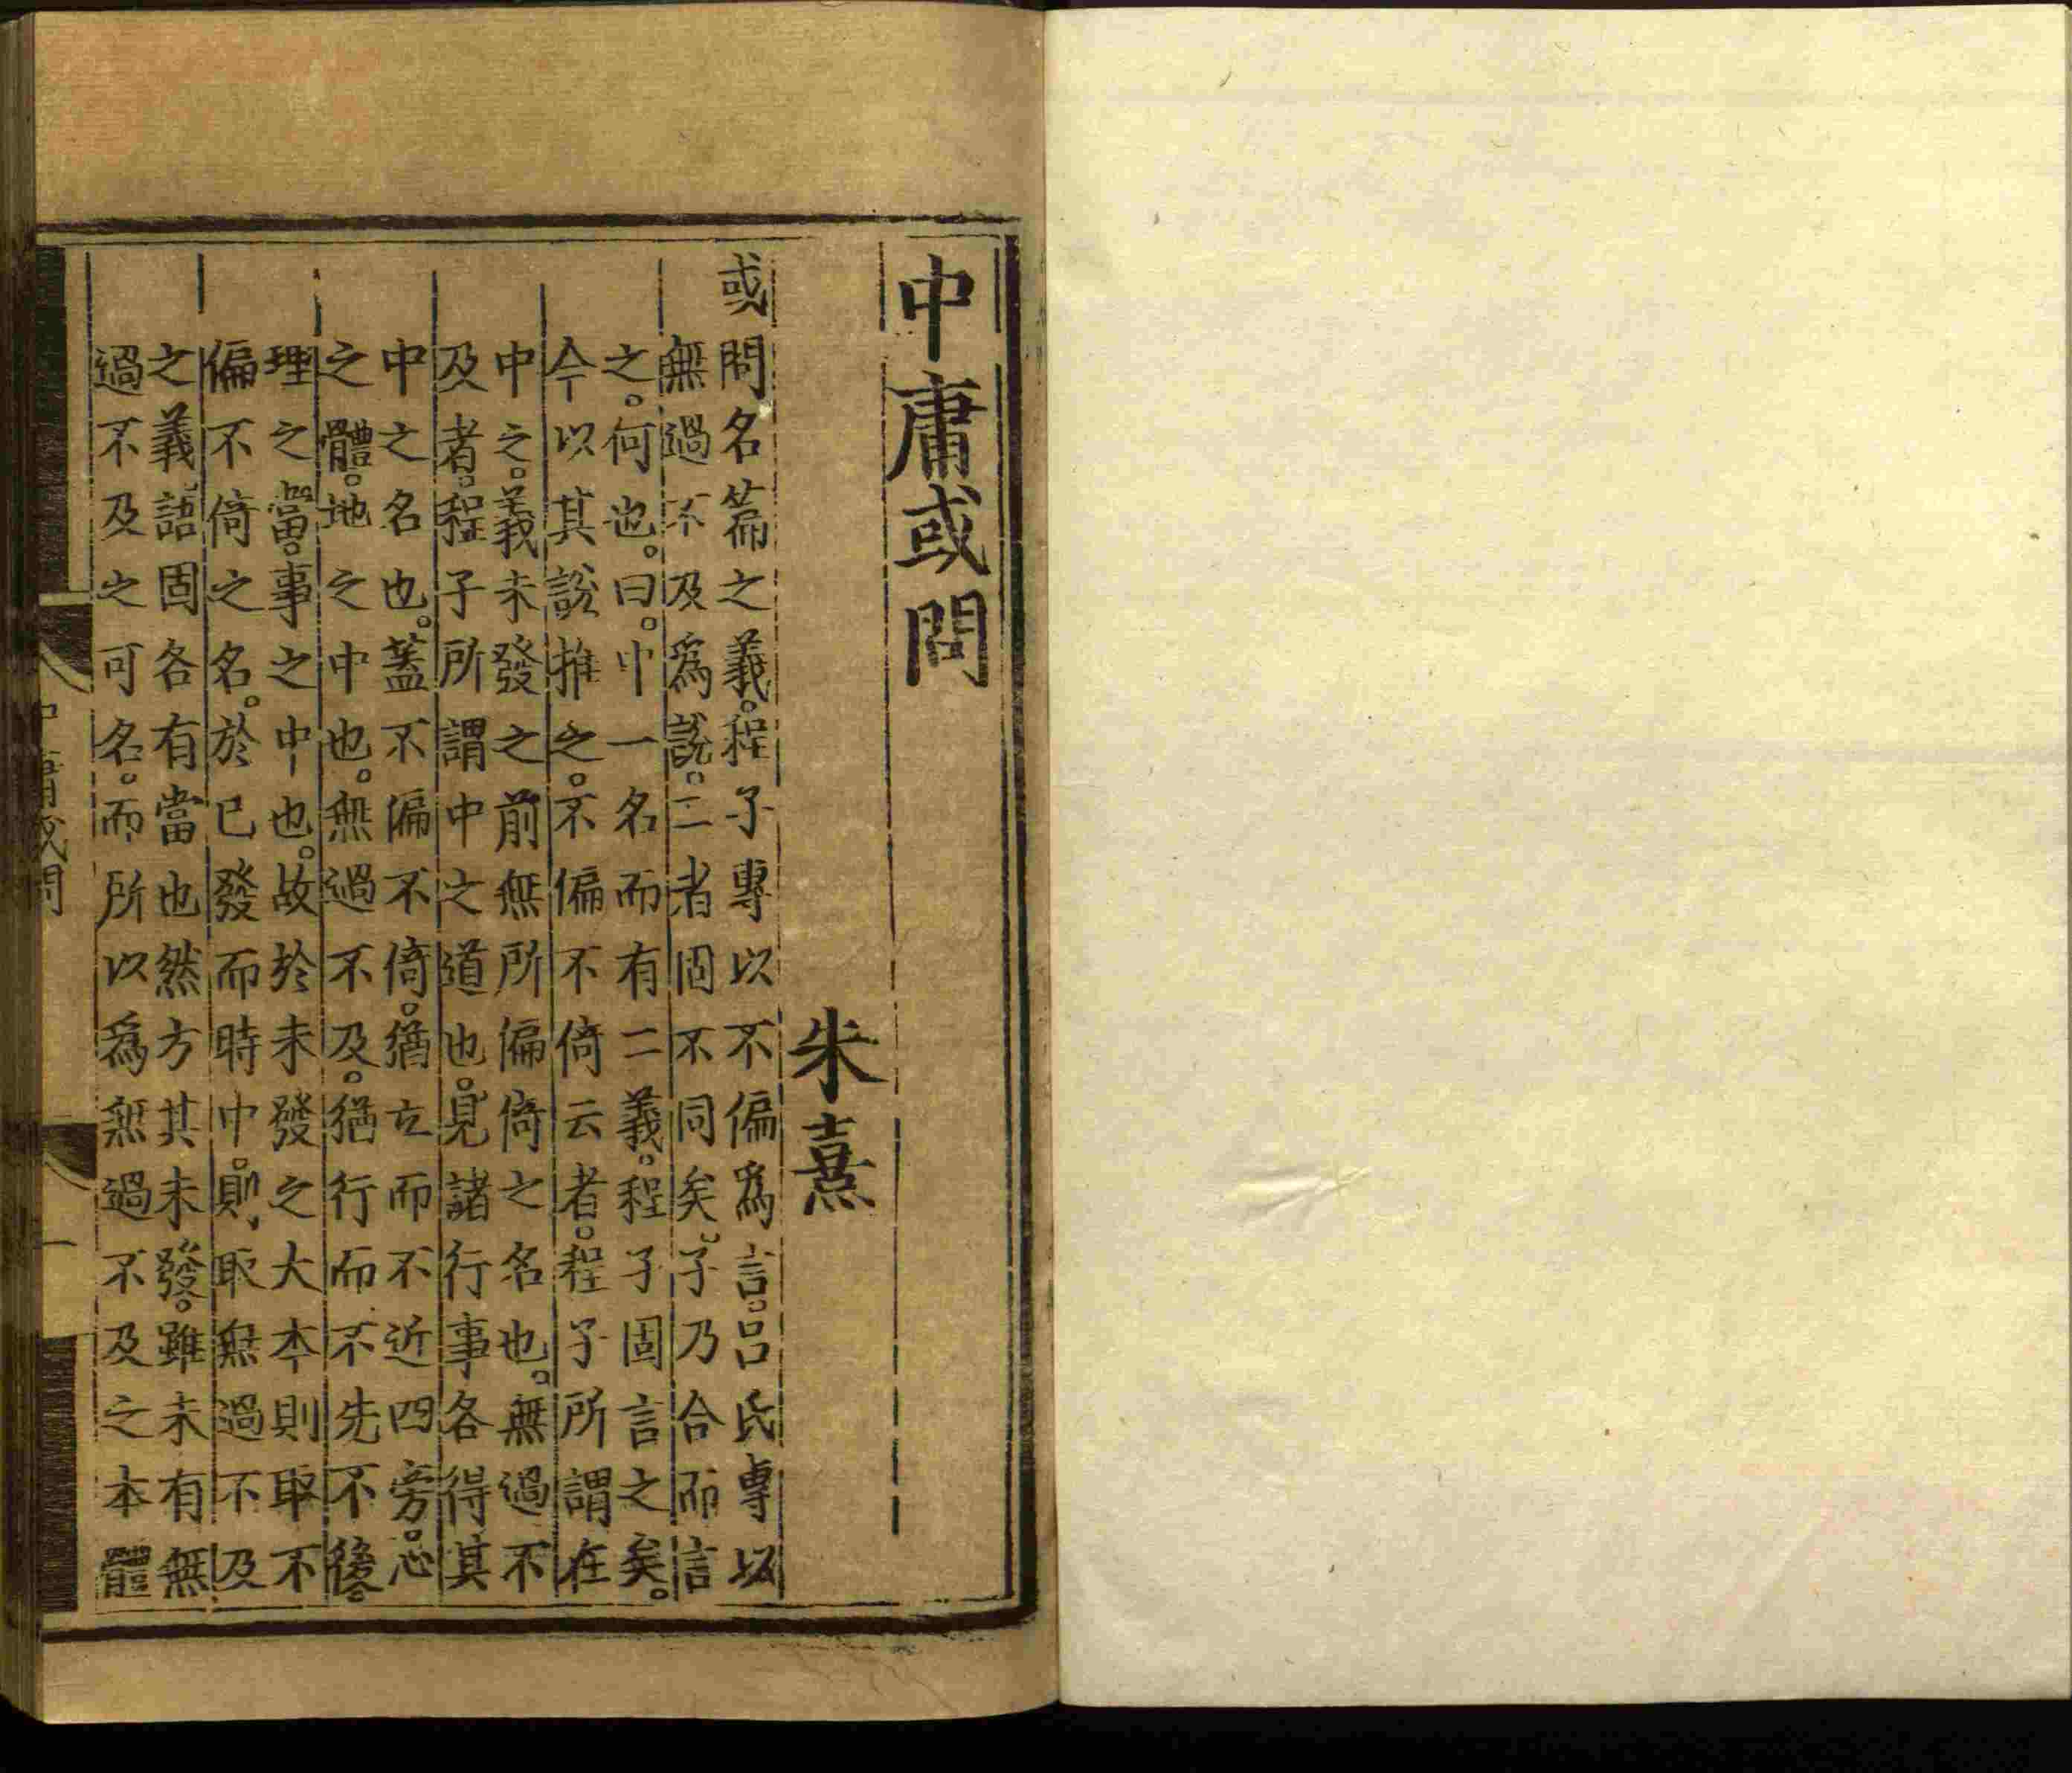 中庸或問
朱熹
或問名篇之義。程子專以不偏爲言。呂氏專以
無過不及爲說。二者固不同矣。子乃合而言
之。何也。曰。中一名而有二義。程子固言之矣。
今以其說推之。不偏不倚云者。程子所謂在
中之。義未發之前無所偏倚之名也。無過不
及者。程子所謂中之道也。見諸行事各得其
中之名也。蓋不偏不倚。猶立而不近四旁。心
之體。地之中也。無過不及。猶行而不先不後。
理之當。事之中也。故於未發之大本則取不
偏不倚之名。於已發而時中。則取無過不及
之義語固各有當也然方其未發。雖未有無
過不及之可名。而所以爲無過不及之本體
中庸或問
一